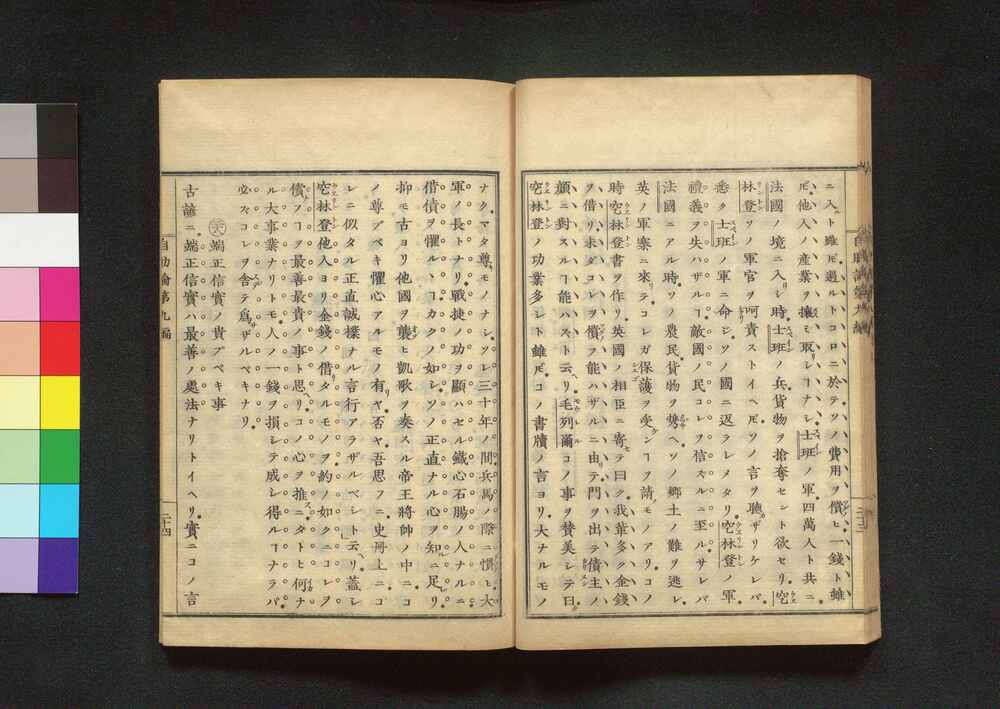 ニ入ト雖𪜈過ルトコロニ於テソノ費用ヲ償ヒ一錢ト雖
𪜈他人ノ産業ヲ攘ミ取リシヿナシ士班ノ軍四萬人ト共ニ
法國ノ境ニ入リシ時士班ノ兵貨物ヲ搶奪セント欲セリ空
林登ソノ軍官ヲ呵責ストイヘ𪜈ソノ言ヲ聽ザリケレバ
悉ク士班ノ軍ニ命シソノ國ニ返ラシメタリ空林登ノ軍
禮義ヲ失ハザルヿ敵國ノ民コレヲ信スルニ至ルサレバ
法國ニアル時ソノ農民貨物ヲ携ヘソノ郷土ノ難ヲ逃レ
英ノ軍寨ニ來リテコレガ保護ヲ受ンヿヲ請モノアリコノ
時空林登書ヲ作リ英國ノ相臣ニ寄テ曰ク我輩多ク金錢
ヲ借リ未ダコレヲ償フ能ハザルニ由テ門ヲ出テ債主ノ
顔ニ對スルヿ能ハスト云リ毛列爾コノ事ヲ賛美シテ曰
空林登ノ功業多シト雖𪜈コノ書牘ノ言ヨリ大ナルモノ
ナクマタ尊モノナシソレ三十年ノ間兵馬ノ際ニ慣ヒ大
軍ノ長トナリ戰捷ノ功ヲ顯ハセル鐵心石腸ノ人ナルニ
借債ヲ懼ルヽヿカクノ如シソノ正直ナル心ヲ知ニ足リ
抑モ古ヨリ他國ヲ襲ヒ凱歌ヲ奏スル帝王將帥ノ中ニコ
ノ尊アベキ懼心アルモノ有ヤ否ヤ吾思フニ史册上ニコ
レニ似タル正直誠樸ナル言行アラザルベシト云リ蓋シ
空林登他人ヨリ金錢ノ借リタルモノヲ約ノ如クニコレヲ
償フヿヲ最善最貴ノ事ト思リコノ心ヲ推ニタトヒ何ナ
ル大事業ナリトモ人ノ一錢ヲ損シテ成シ得ルヿナラバ
必スコレヲ舍テ爲ザルベキナリ
端正信實ノ貴ブベキ事
古諺ニ端正信實ハ最善ノ處法ナリトイヘリ實ニコノ言
自助論第九編
二十四